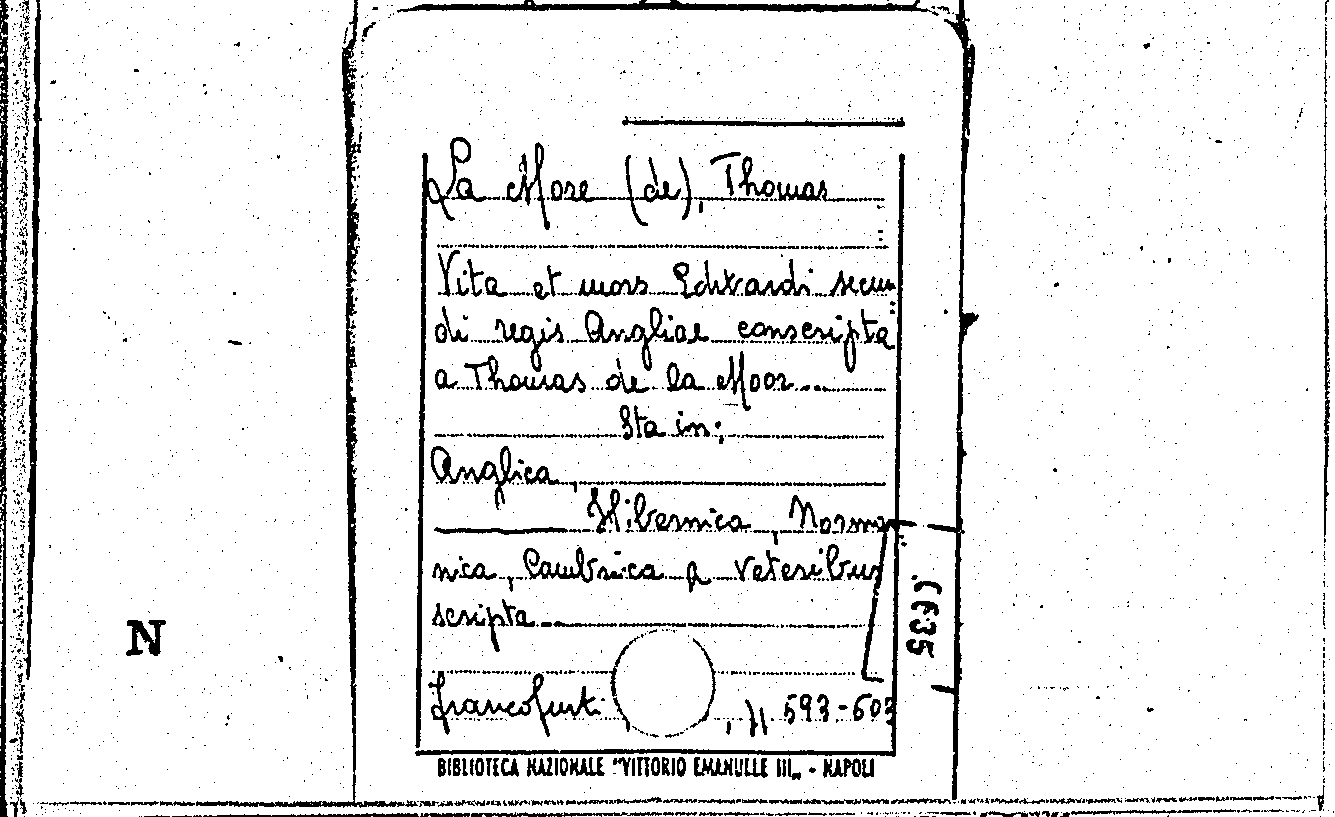 La More (de), Thomas
Vita et mors Edwardi secun
di regis Angliae conscripta
a Thomas de la Moor...
Sta in:
Anglica,
Hibernica, Norma
nica, Cambrica a veteribus
scripta...
Francofurti, , ff 593-603
N
BIBLIOTECA NAZIONALE "VITTORIO EMANUELE III„ - NAPOLI